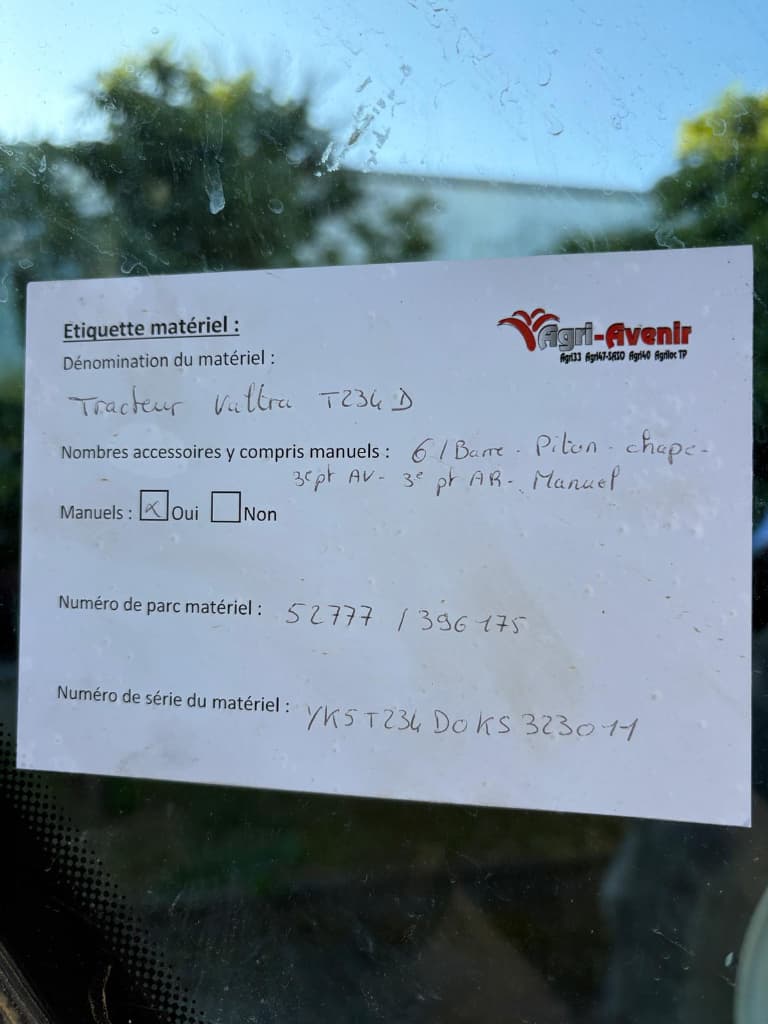 Etiquette matériel :
Agri-Avenir
Agri33 Agri47-SASO Agri40 Agriloc TP
Dénomination du matériel :
Tracteur Valtra T234 D
Nombres accessoires y compris manuels : 6 / Barre - Piton - chape -
3e pt AV - 3e pt AR - Manuel
Manuels : x Oui Non
Numéro de parc matériel : 52777 / 396175
Numéro de série du matériel : YK5T234DOKS323011